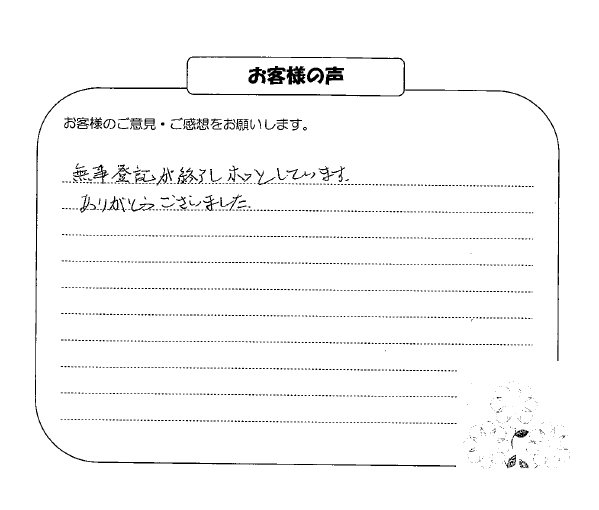 お客様の声
お客様のご意見・ご感想をお願いします。
無事登記が終了しホッとしています。
ありがとうございました。